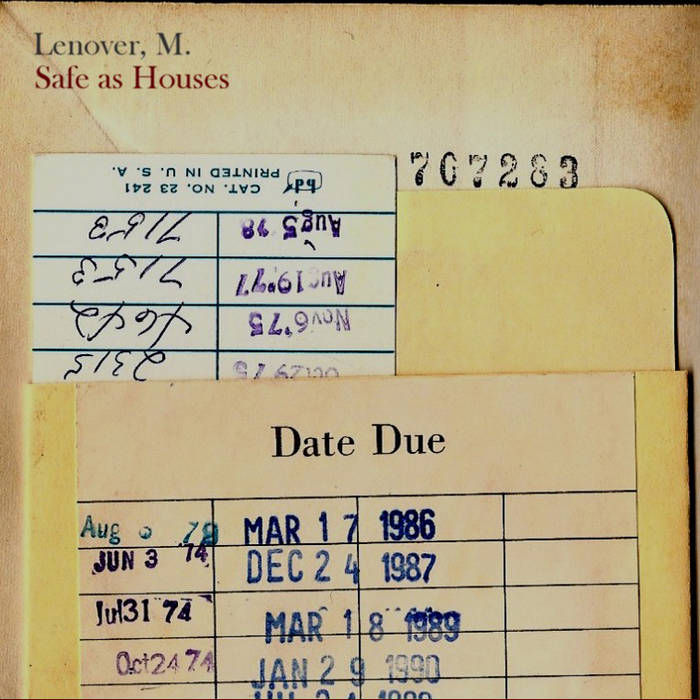 Lenover, M.
Safe as Houses
707283
hd CAT. NO. 23 241
PRINTED IN U. S. A.
7153 Aug 5 '78
7153 Aug 19 '77
4642 Nov 6 '75
2315 Oct 29 75
Date Due
Aug 78 MAR 17 1986
JUN 3 74 DEC 24 1987
Jul 31 74 MAR 18 1989
Oct 24 74 JAN 29 1990